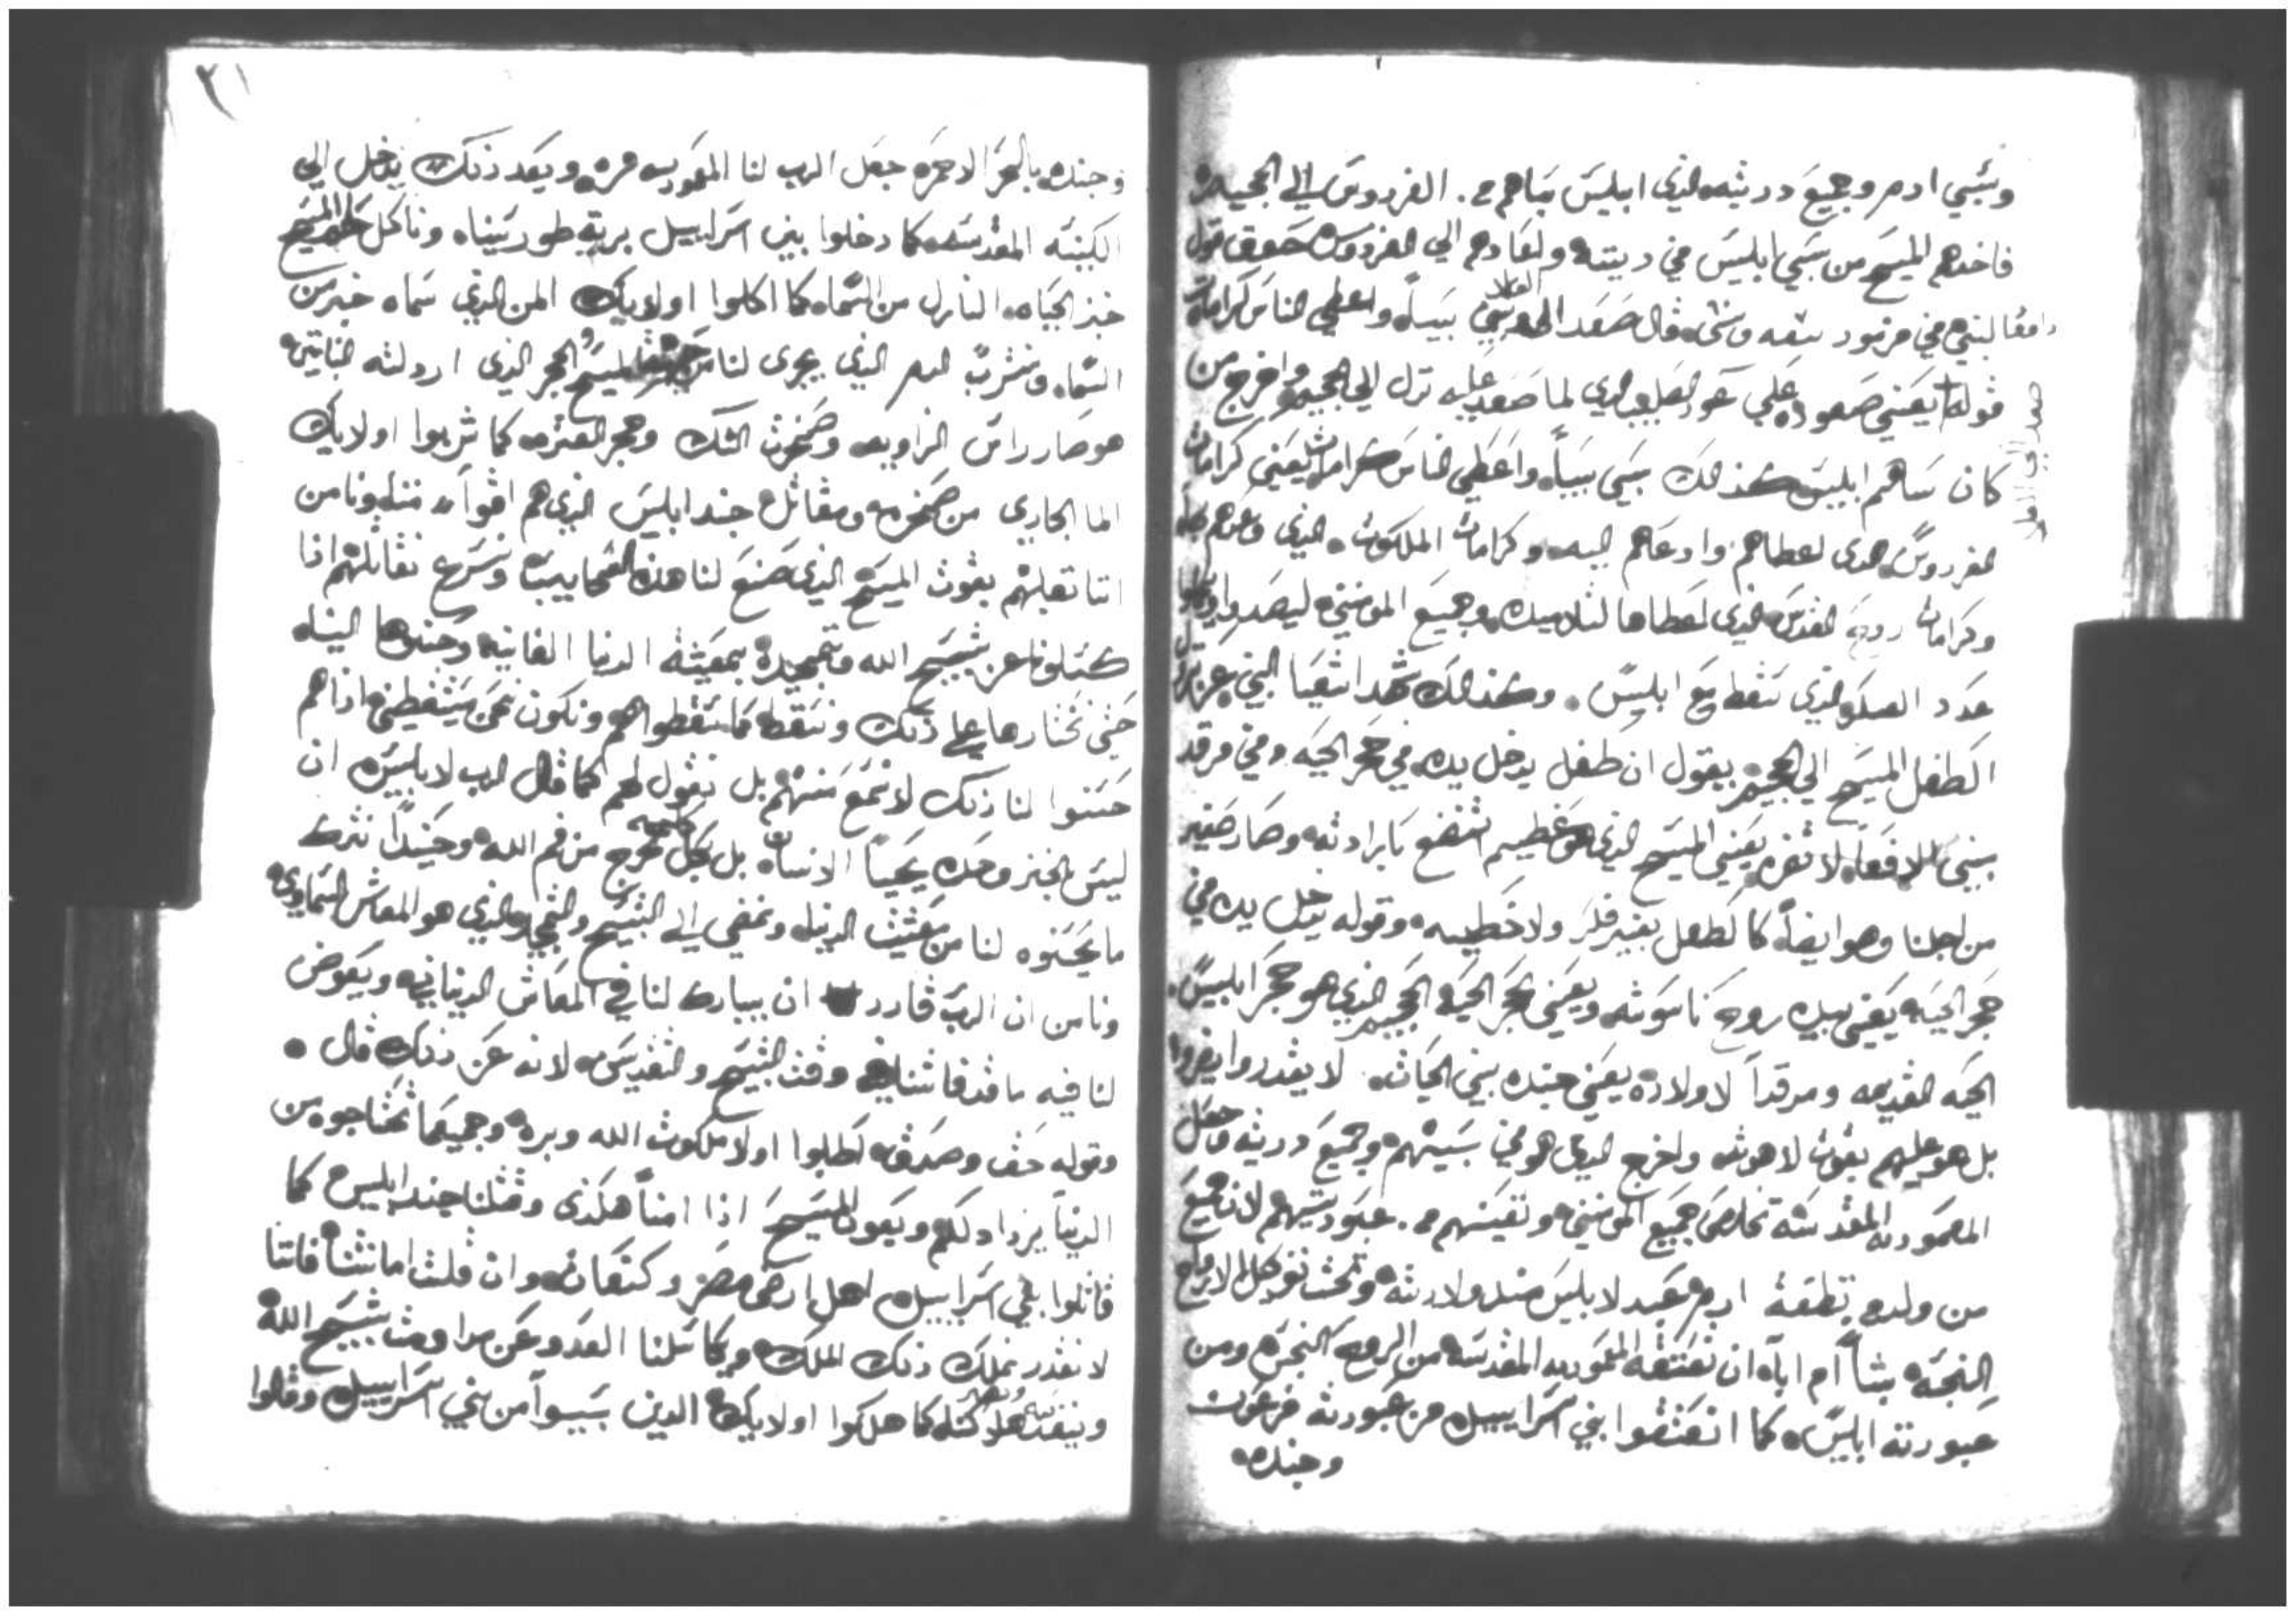 وسبي ادم وجميع دريته الذي ابليس سباهم من الفردوس الي الجحيم
فاخدهم المسيح من سبي ابليس في ديته واعادهم الي الفردوس حقق قول
داوود النبي في مزمور سبعه وستين قال صعد الي العلا وسبي سبياً واعطي الناس كرامات
صعد الي العلا
قوله يعني صعوده علي عود الصليب الذي لما صعد عليه نزل الي الجحيم واخرج من
كان سباهم ابليس كذالك سبي سبياً واعطي الناس كرامات يعني كرامات
الفردوس الذي اعطاهم وادعاهم اليه وكرامات الملكوت الذي وعدهم به
وكرامات روح القدس الذي اعطاها لتلاميده وجميع المومنين ليصعدوا
عدد العسكر الذي سقط مع ابليس وكذالك شهد اشعيا النبي عن نزول
الطفل المسيح الي الجحيم بقول ان طفل يدخل يده في حجر الحيه وفي مرقد
بني الافعا لا تضره يعني المسيح الذي هو عظيم اتضع بارادته وصار صغير
من اجلنا وهو ايضاً كالطفل بغير فكر ولا خطيه وقوله يدخل يده في
حجر الحيه يعني بيده روح ناسوته ويعني بحجر الحيه الجحيم الذي هو حجر ابليس
الحيه القديمه ومرقداً لاولاده يعني جنده بني الحيات لا يقدروا يضروا
بل هو عليهم بقوت لاهوته واخرج الذي هو في سبيتهم وجميع دريته وجعل
المعموديه المقدسه تخلص جميع المومنين وتعتقهم من عبوديتهم لان جميع
من ولد من نطفة ادم عبيد لابليس مند ولادته وتحت نفوذ كل الارواح
النجسه بتناً ام اباه ان تعتقه المعموديه المقدسه من الروح النجس ومن
عبودته ابليس كما انعتقوا بني اسراييل من عبودته فرعون
وجنده
٢١
وجنده بالبحر الاحمر جعل الرب لنا المعموديه مره وبعد ذلك ندخل الي
الكنيسه المقدسه كما دخلوا بني اسراييل برية طور سيناه وناكل جسد المسيح
خبز الحياه النازل من السماه كما اكلوا اولايك المن الذي سماه خبز من
السماه ونشرب الدم الذي يجري لنا من جنب المسيح الحجر الذي اردلته البنايين
هو صار راس الزاويه وصخرت الشك وحجر العثره كما شربوا اولايك
الما الجاري من صخره ونقاتل جند ابليس الذي هم اقوا مننا ونامن
اننا نغلبهم بقوت المسيح الذي صنع لنا هذه العجايب ونسرع نقاتلهم اذا
كسلونا عن تسبيح الله وتمجيده بمعيشة الدنيا الفانيه وحسنوها الينا
حتي نختارها علي ذلك ونسقط كما سقطوا هم ونكون نحن ساقطين اذا هم
حسنوا لنا ذلك لا نسمع منهم بل نقول لهم كما قال الرب لابليس ان
ليس بالخبز وحده يحيا الانسان بل بكل كلمه تخرج من فم الله وحينيداً نترك
ما يحسنوه لنا من معيشت الدنيا ونمضي الي التسبيح والتمجيد الذي هو المعاش السماوي
ونامن ان الرب قادر ان يبارك لنا في المعاش الدنيانيه ويعوض
لنا فيه ما قد فاتنا في وقت التسبيح والتقديس لانه عن ذلك قال
وقوله حق وصدق اطلبوا اولا ملكوت الله وبره وجميع ما تحتاجوه من
الدنيا يزداد لكم ويعون المسيح اذا امنا هكذى وقتلنا جند ابليس كما
قاتلوا بني اسراييل اهل ارض مصر وكنعان وان قلت امانتنا فاننا
لا نقدر نملك ذلك الملك ويكاسلنا العدو عن مداومت تسبيح الله
وينفذ فينا هلاكنا كما هلكوا اولايك الذين يبسوا من بني اسراييل وقالوا